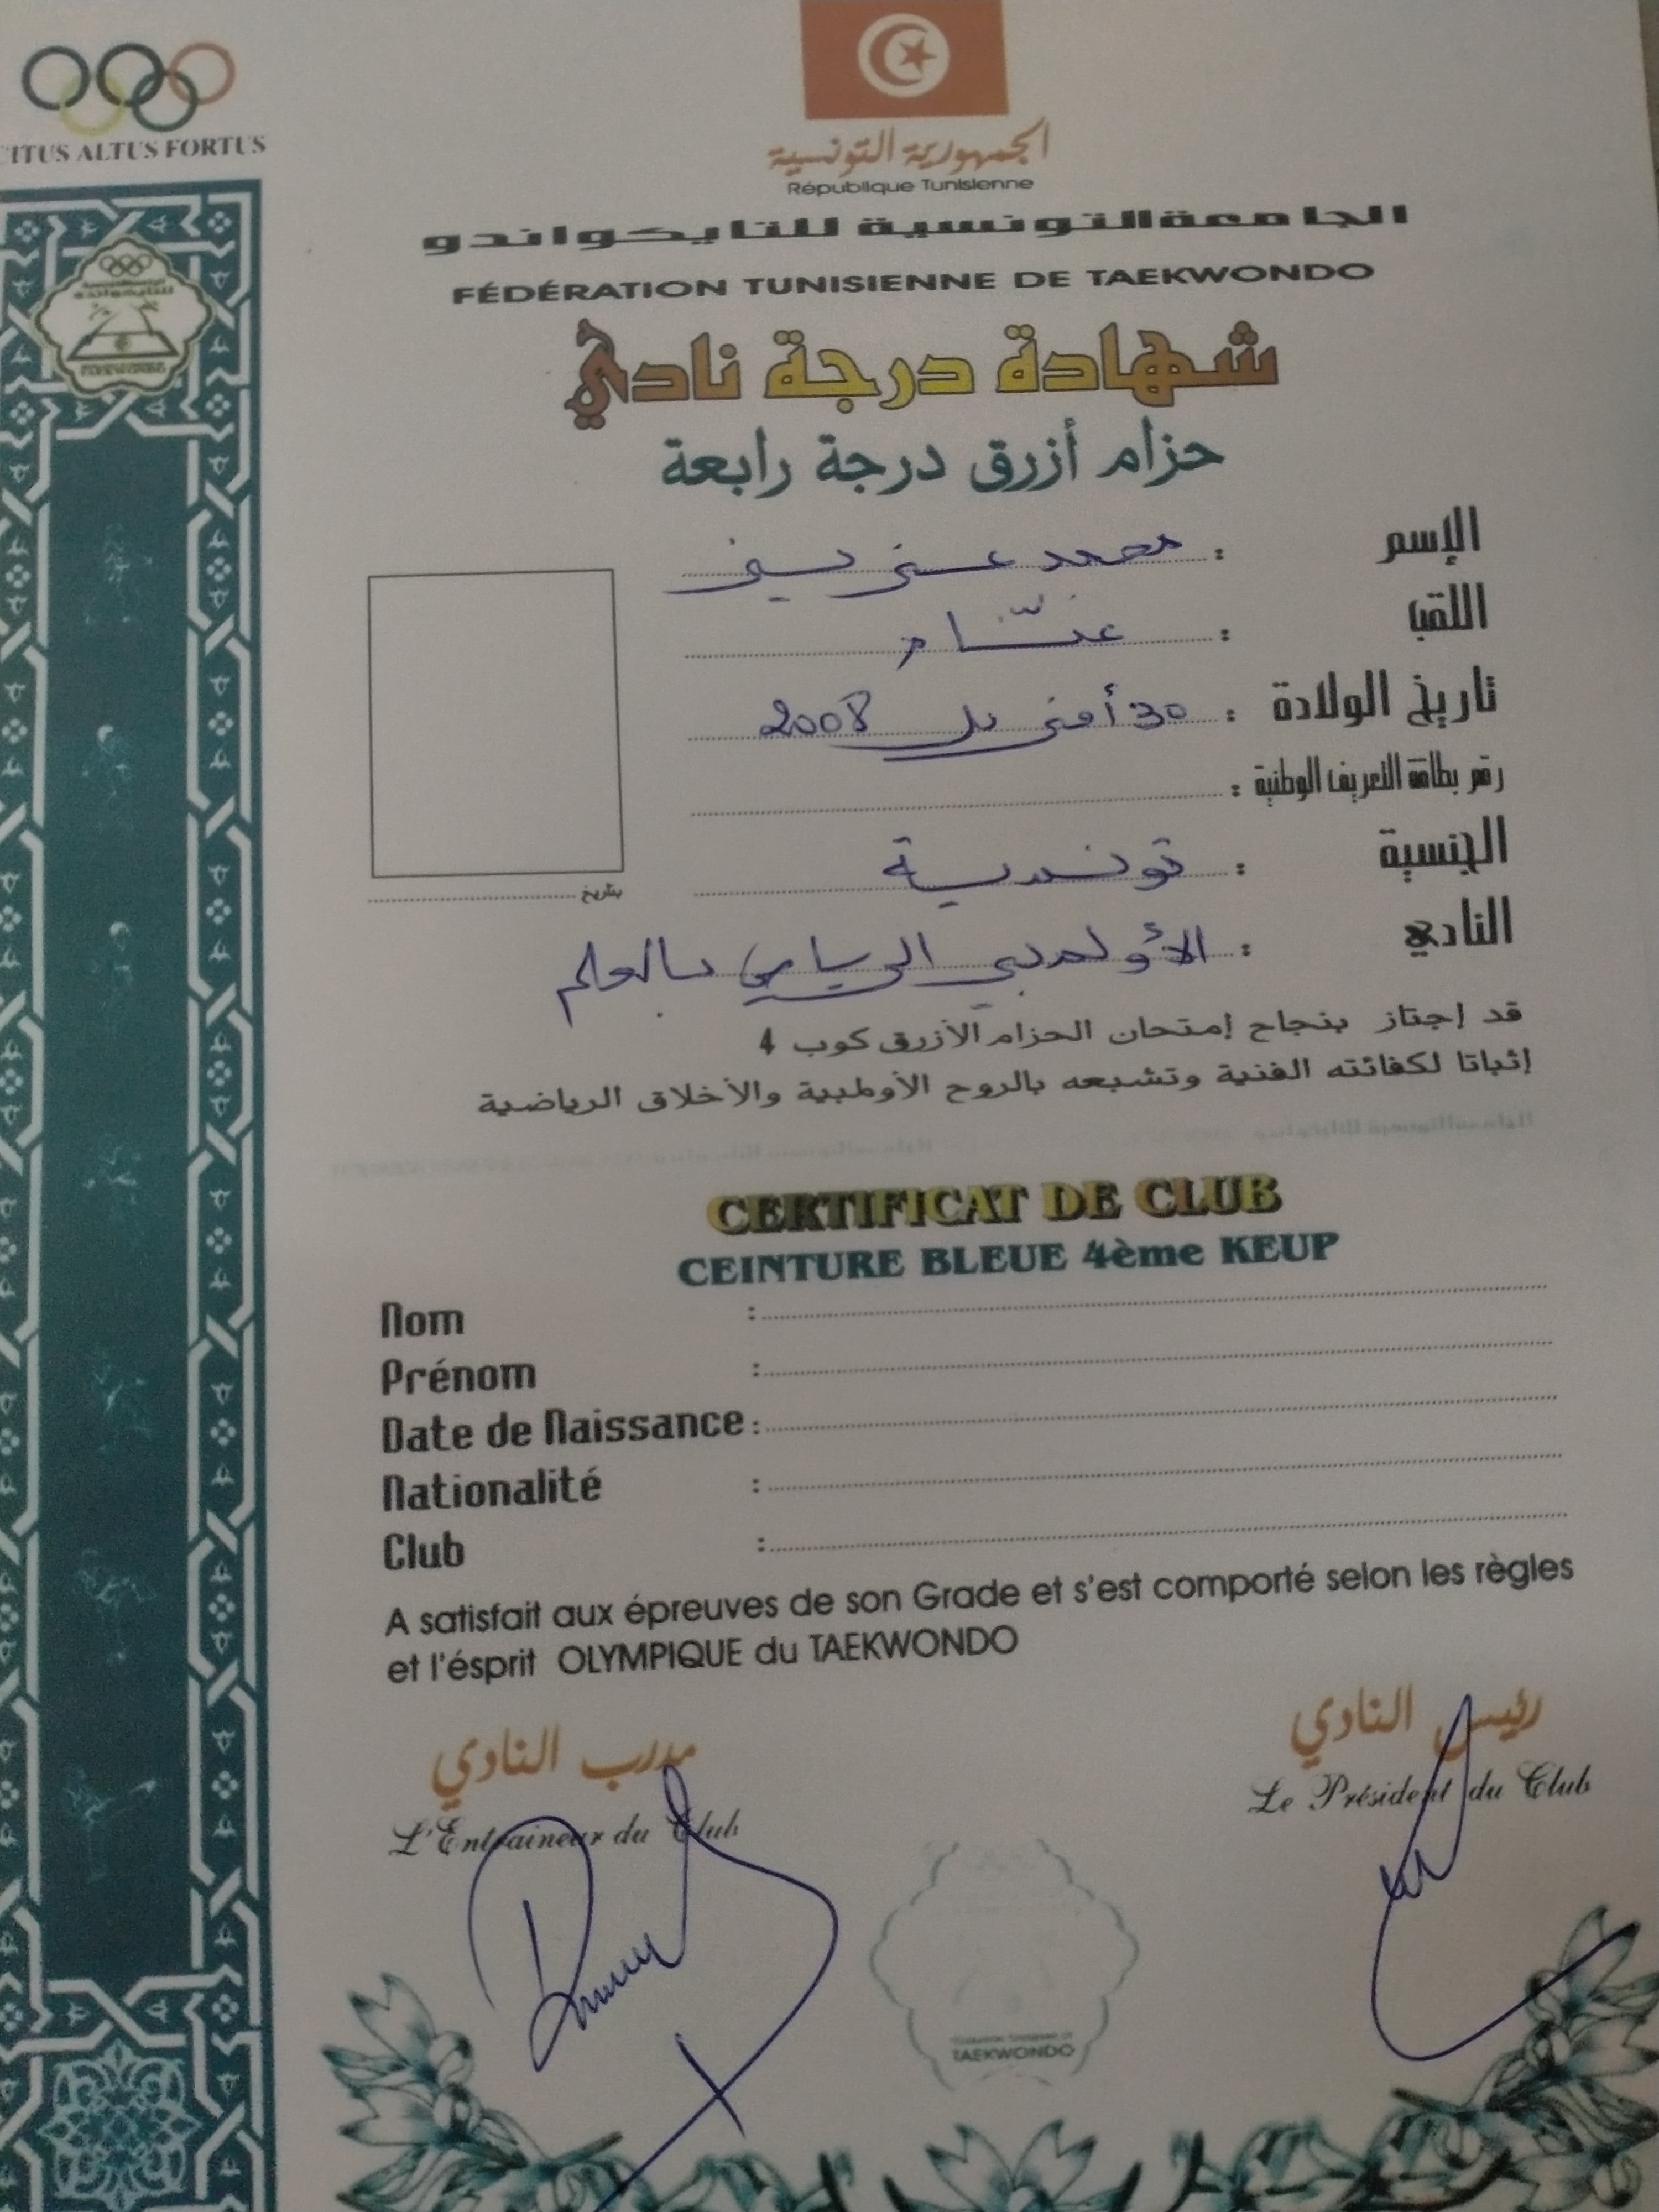 CITUS ALTUS FORTUS
الجمهورية التونسية
République Tunisienne
الجامعة التونسية للتايكواندو
FÉDÉRATION TUNISIENNE DE TAEKWONDO
شهادة درجة نادي
حزام أزرق درجة رابعة
الإسم : محمد عزيز
اللقب :
تاريخ الولادة : 30 أفريل 2008
رقم بطاقة التعريف الوطنية :
الجنسية : تونسية
النادي : الأولمبي الرياضي بالعلم
بتاريخ
قد إجتاز بنجاح إمتحان الحزام الأزرق كوب 4
إثباتا لكفائته الفنية وتشبعه بالروح الأولمبية والأخلاق الرياضية
CERTIFICAT DE CLUB
CEINTURE BLEUE 4ème KEUP
Nom :
Prénom :
Date de Naissance :
Nationalité :
Club :
A satisfait aux épreuves de son Grade et s'est comporté selon les règles
et l'ésprit OLYMPIQUE du TAEKWONDO
رئيس النادي
Le Président du Club
مدرب النادي
L'Entraineur du Club
TAEKWONDO